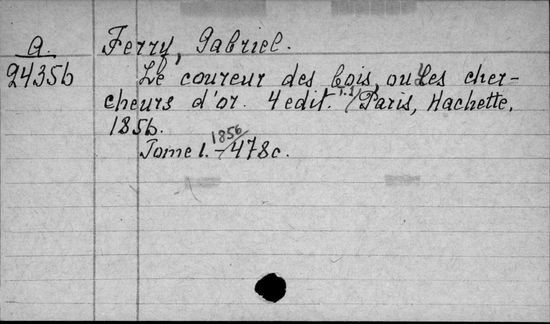 A. Ferry, Gabriel.
24356 Le coureur des bois, ou Les cher-
cheurs d'or. 4 edit. T.1 / Paris, Hachette,
1856.
1856
Tome 1. - /478c.